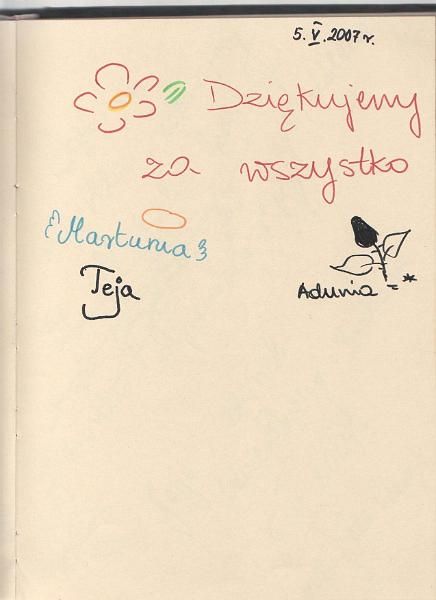 5. V. 2007 r.
Dziękujemy
za wszystko
Martunia
Teja
Adunia =*